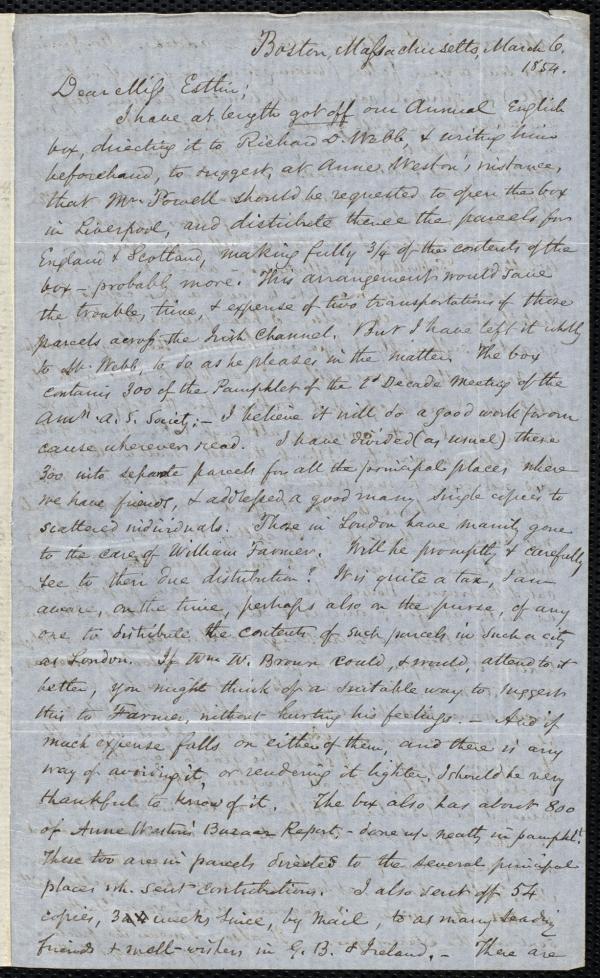 Boston, Massachusetts, March 6.
1854.
Dear Miss Esther;
I have at length got off our Annual English
box, directing it to Richard D. Webb, & writing him
beforehand, to suggest, at Anne Weston's instance,
that Mr. Powell should be requested to open the box
in Liverpool, and distribute thence the parcels for
England & Scotland, making fully 3/4 of the contents of the
box – probably more. This arrangement would save
the trouble, time, & expense of two transportations of those
parcels across the Irish Channel. But I have left it wholly
to Mr. Webb, to do as he pleases in the matter. The box
contains 300 of the Pamphlet of the 2d Decade Meeting of the
Amn. A. S. Society; – I believe it will do a good work for our
cause wherever read. I have divided (as usual) these
300 into separate parcels for all the principal places where
we have friends, & addressed a good many single copies to
scattered individuals. Those in London have mainly gone
to the care of William Farmer. Will he promptly & carefully
see to their due distribution? It is quite a tax, I am
aware, on the time, perhaps also on the purse, of any
one to distribute the contents of such parcels in such a city
as London. If Wm. W. Brown could, & would, attend to it
better, you might think of a suitable way to suggest
this to Farmer, without hurting his feelings. – And if
much expense falls on either of them, and there is any
way of avoiding it, or rendering it lighter, I should be very
thankful to know of it. The box also has about 800
of Anne Weston's Bazaar Report, – done up neatly in pamphlt.
These too are in parcels directed to the several principal
places wh. sent contributions. I also sent off 54
copies, weeks since, by mail, to as many leading
friends & well-wishers in G. B. & Ireland. – There are